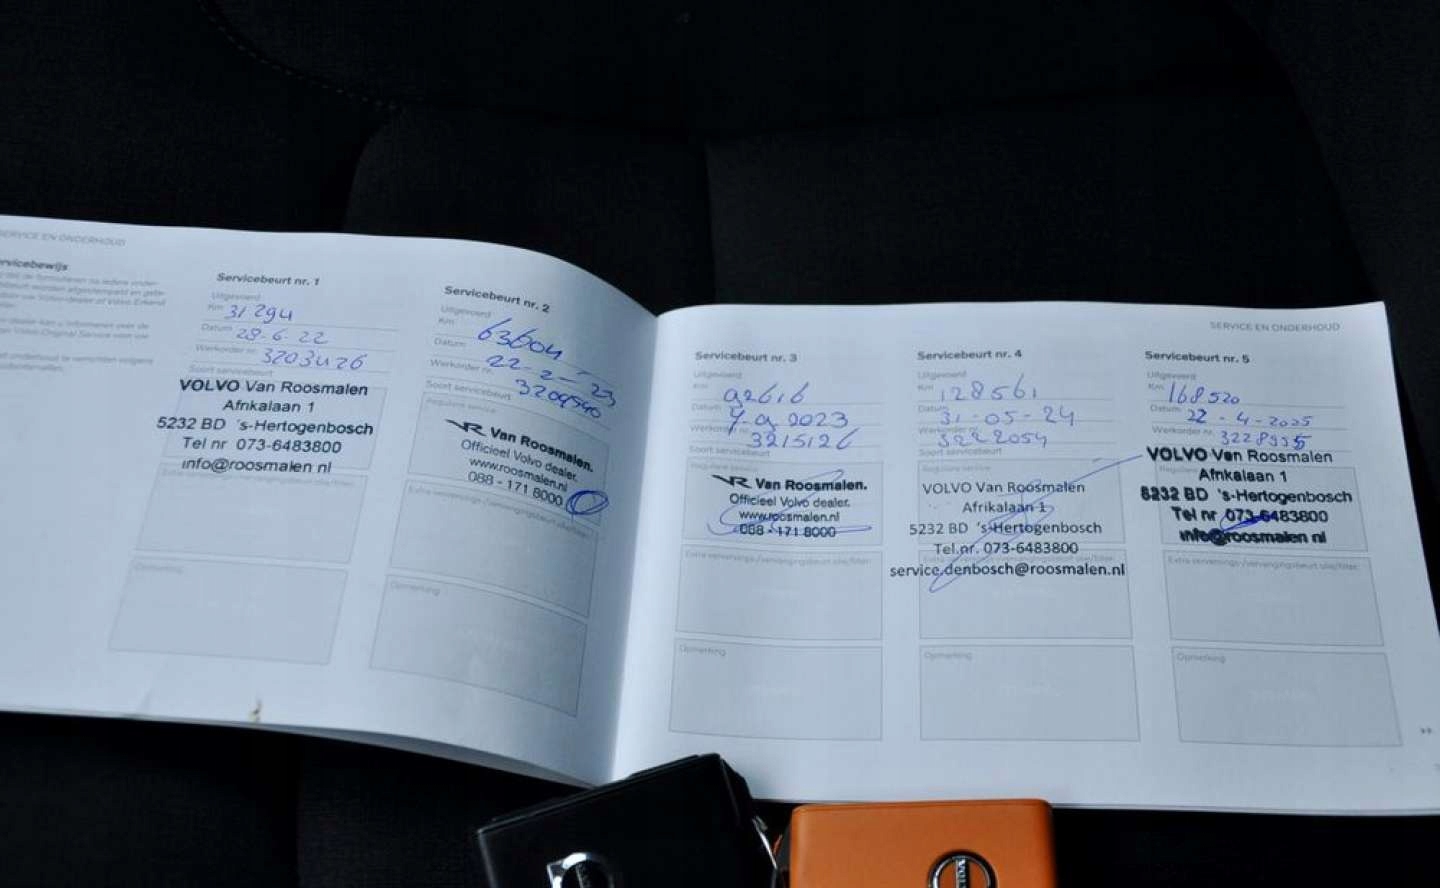 SERVICE EN ONDERHOUD
Servicebeurt nr. 1
Uitgevoerd
Km 31294
Datum 28-6-22
Werkorder nr. 3203426
Soort servicebeurt
VOLVO Van Roosmalen
Afrikalaan 1
5232 BD 's-Hertogenbosch
Tel nr 073-6483800
info@roosmalen nl
Opmerking
Servicebeurt nr. 2
Uitgevoerd
Km 63604
Datum 22-2-'23
Werkorder nr. 3209540
Soort servicebeurt
Reguliere service
VR Van Roosmalen.
Officieel Volvo dealer.
www.roosmalen.nl
088 - 171 8000
Opmerking
SERVICE EN ONDERHOUD
Servicebeurt nr. 3
Uitgevoerd
Km 92616
Datum 7-9-2023
Werkorder nr. 3215126
Soort servicebeurt
Reguliere service
VR Van Roosmalen.
Officieel Volvo dealer.
www.roosmalen.nl
088 - 171 8000
Opmerking
Servicebeurt nr. 4
Uitgevoerd
Km 128561
Datum 31-05-24
Werkorder nr. 3222054
Soort servicebeurt
Reguliere service
VOLVO Van Roosmalen
Afrikalaan 1
5232 BD 's-Hertogenbosch
Tel.nr. 073-6483800
service.denbosch@roosmalen.nl
Opmerking
Servicebeurt nr. 5
Uitgevoerd
Km 168520
Datum 22-4-2025
Werkorder nr.
VOLVO Van Roosmalen
Afrikalaan 1
5232 BD 's-Hertogenbosch
Tel nr 073-6483800
info@roosmalen nl
Opmerking
VOLVO